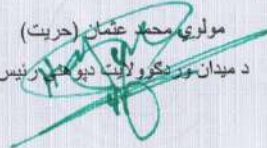 مولوي محمد عثمان (حریت)
د میدان وردګو ولایت د پوهنې رئیس